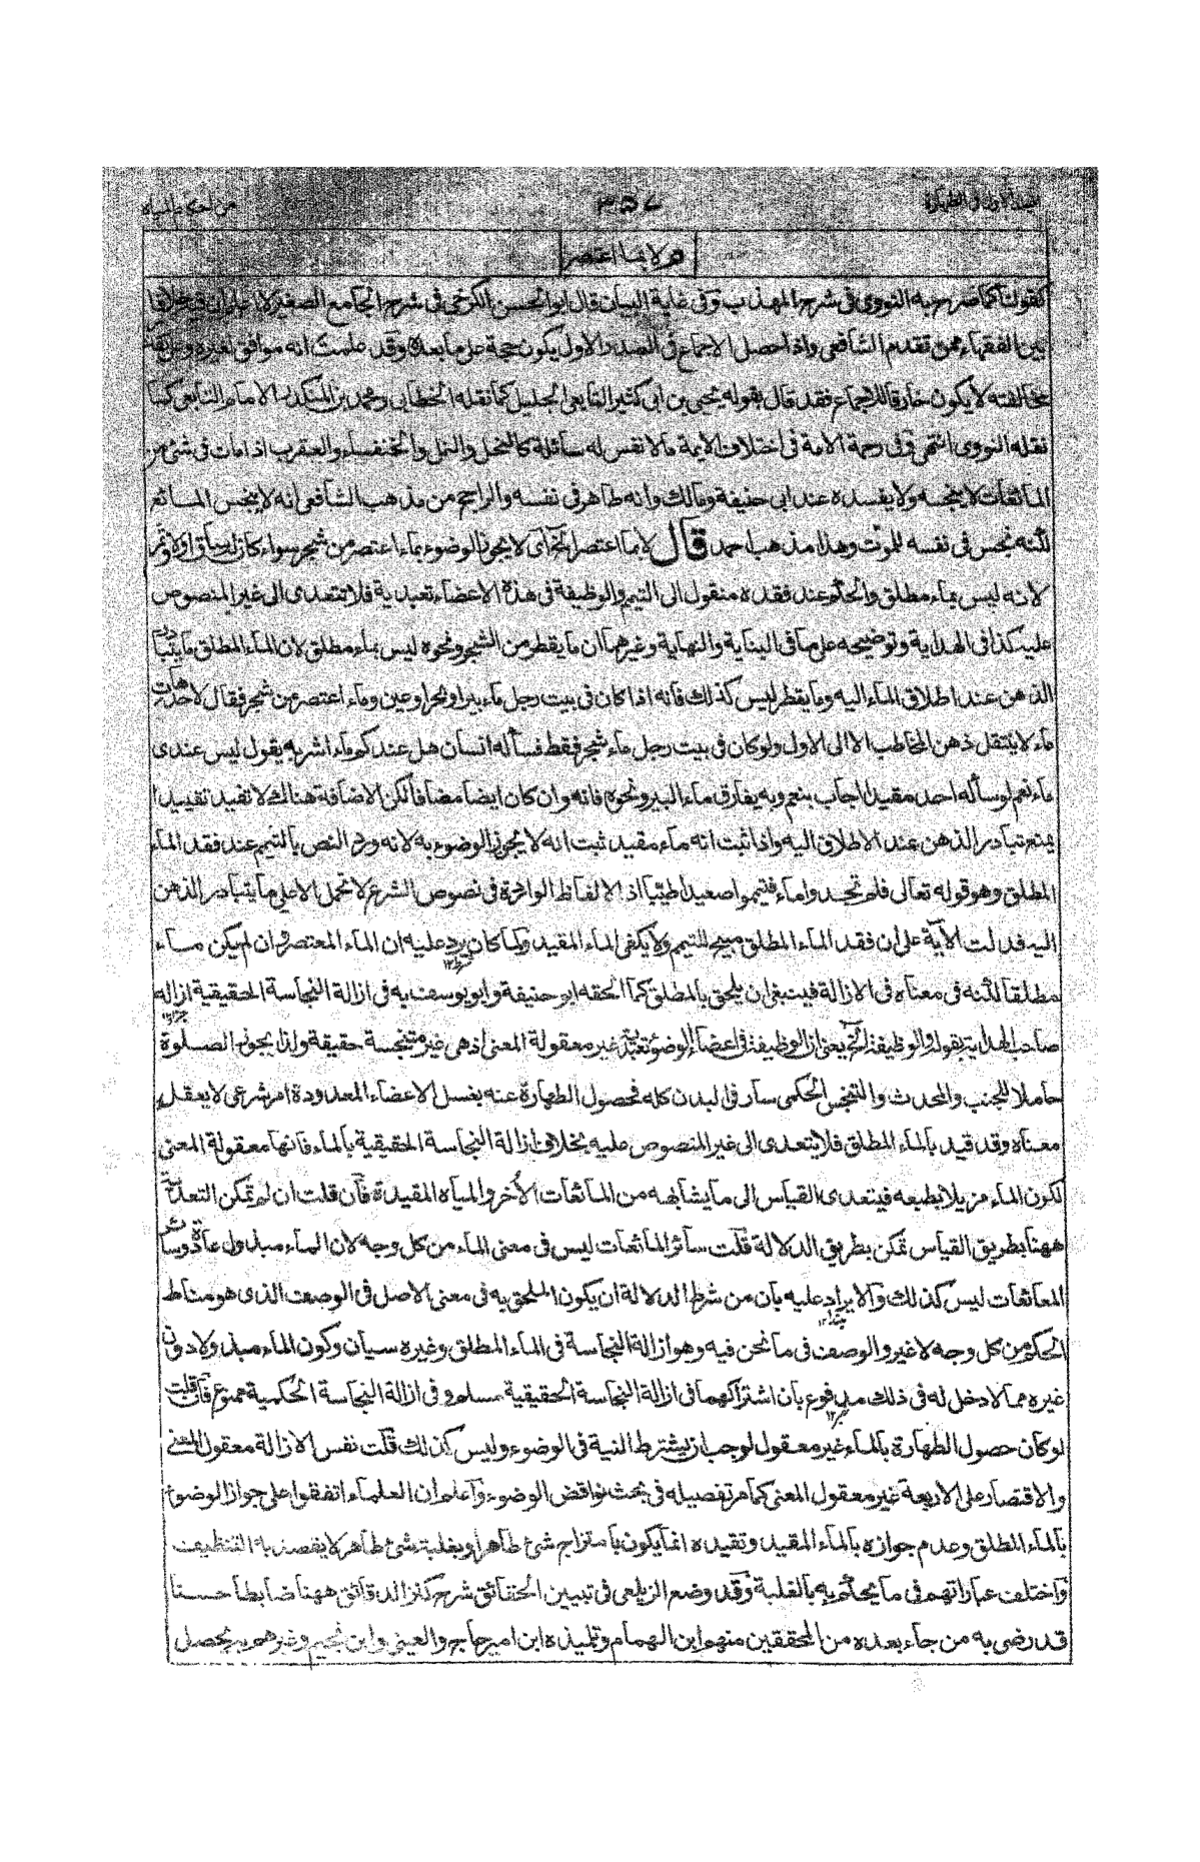 ٣٥٧
م لا بما اعتصر
كقولنا كما صرح به النووي فى شرح المهذب وفى غاية البيان قال ابو الحسن الكرخى فى شرح الجامع الصغير لا اعلم ان فيه خلافا
بين الفقهاء ممن تقدم الشافعى واذا حصل الاجماع فى الصدر الاول يكون حجة على ما بعده وقد علمت انه موافق لغيره وعلى تقدير
مخالفته لا يكون خارقا للاجماع فقد قال بقوله يحيى بن ابى كثير التابعى الجليل كما نقله الخطابى ومحمد بن المنكدر الامام التابعى كما
نقله النووى انتهى وفى رحمة الامة فى اختلاف الايمة ما لا نفس له سائلة كالنحل والنمل والخنفساء والعقرب اذا مات فى شئ من
المائعات لا ينجسه ولا يفسده عند ابى حنيفة ومالك وانه طاهر فى نفسه والراجح من مذهب الشافعى انه لا ينجس المائع
لكنه نجس فى نفسه للموت وهذا مذهب احمد قال لا بما اعتصر الخ اى لا يجوز الوضوء بماء اعتصر من شجر سواء كان له ساق او لا وثمر
لانه ليس بماء مطلق والحكم عند فقده منقول الى التيمم والوظيفة فى هذه الاعضاء تعبدية فلا تتعدى الى غير المنصوص
عليه كذا فى الهداية وتوضيحه على ما فى البناية والنهاية وغيرهما ان ما يقطر من الشجر ونحوه ليس بماء مطلق لان الماء المطلق ما يتبادر
الذهن عند اطلاق الماء اليه وما يقطر ليس كذلك فانه اذا كان فى بيت رجل ماء بير او بحر او عين وماء اعتصر من شجر فقال لاحد هات
ماء لا ينتقل ذهن المخاطب الا الى الاول ولو كان فى بيت رجل ماء شجر فقط فسأله انسان هل عندكم ماء اشربه يقول ليس عندى
ماء نعم لو سأله احد مقيدا اجاب بنعم وبه يفارق ماء البير ونحوه فانه وان كان ايضا مضافا لكن الاضافة هناك لا تفيد تقييدا
يمنع تبادر الذهن عند الاطلاق اليه واذا ثبت انه ماء مقيد ثبت انه لا يجوز الوضوء به لانه ورد النص بالتيمم عند فقد الماء
المطلق وهو قوله تعالى فلم تجدوا ماء فتيمموا صعيدا طيبا اذ الالفاظ الواردة فى نصوص الشرع لا تحمل الا على ما يتبادر الذهن
اليه فدلت الآية على ان فقد الماء المطلق مبيح للتيمم ولا يكفى الماء المقيد ولما كان يرد عليه ان الماء المعتصر وان لم يكن ماء
مطلقا لكنه فى معناه فى الازالة فينبغى ان يلحق بالمطلق كما الحقه ابو حنيفة وابو يوسف به فى ازالة النجاسة الحقيقية ازاله
صاحب الهداية بقوله والوظيفة الخ يعنى ان الوظيفة فى اعضاء الوضوء تعبدية غير معقولة المعنى اذ هى غير متنجسة حقيقة ولذا يجوز الصلوة
حاملا للجنب والمحدث والتنجس الحكمى سار فى البدن كله فحصول الطهارة عنه بغسل الاعضاء المعدودة امر شرعى لا يعقل
معناه وقد قيد بالماء المطلق فلا يتعدى الى غير المنصوص عليه بخلاف ازالة النجاسة الحقيقية بالماء فانها معقولة المعنى
لكون الماء مزيلا بطبعه فيتعدى القياس الى ما يشابهه من المائعات الأخر والمياه المقيدة فان قلت ان لم يمكن التعدية
ههنا بطريق القياس تمكن بطريق الدلالة قلت سائر المائعات ليس فى معنى الماء من كل وجه لان الماء مبذول عادة وسائر
المائعات ليس كذلك والايراد عليه بان من شرط الدلالة ان يكون الملحق به فى معنى الاصل فى الوصف الذى هو مناط
الحكم من كل وجه لا غير والوصف فى ما نحن فيه وهو ازالة النجاسة فى الماء المطلق وغيره سيان وكون الماء مبذولا دون
غيره مما لا دخل له فى ذلك مدفوع بان اشتراكهما فى ازالة النجاسة الحقيقية مسلم وفى ازالة النجاسة الحكمية ممنوع فان قلت
لو كان حصول الطهارة بالماء غير معقول لوجب ان يشترط النية فى الوضوء وليس كذلك قلت نفس الازالة معقول المعنى
والاقتصار على الاربعة غير معقول المعنى كما مر تفصيله فى بحث نواقض الوضوء واعلم ان العلماء اتفقوا على جواز الوضوء
بالماء المطلق وعدم جوازه بالماء المقيد وتقيده انما يكون بامتزاج شئ طاهر او بغلبة شئ طاهر لا يقصد به التنظيف
واختلف عباراتهم فى ما يحكم به بالغلبة وقد وضع الزيلعى فى تبيين الحقائق شرح كنز الدقائق ههنا ضابطا حسنا
قد رضى به من جاء بعده من المحققين منهم ابن الهمام وتلميذه ابن امير حاج والعينى وابن نجيم وغيرهم به يحصل